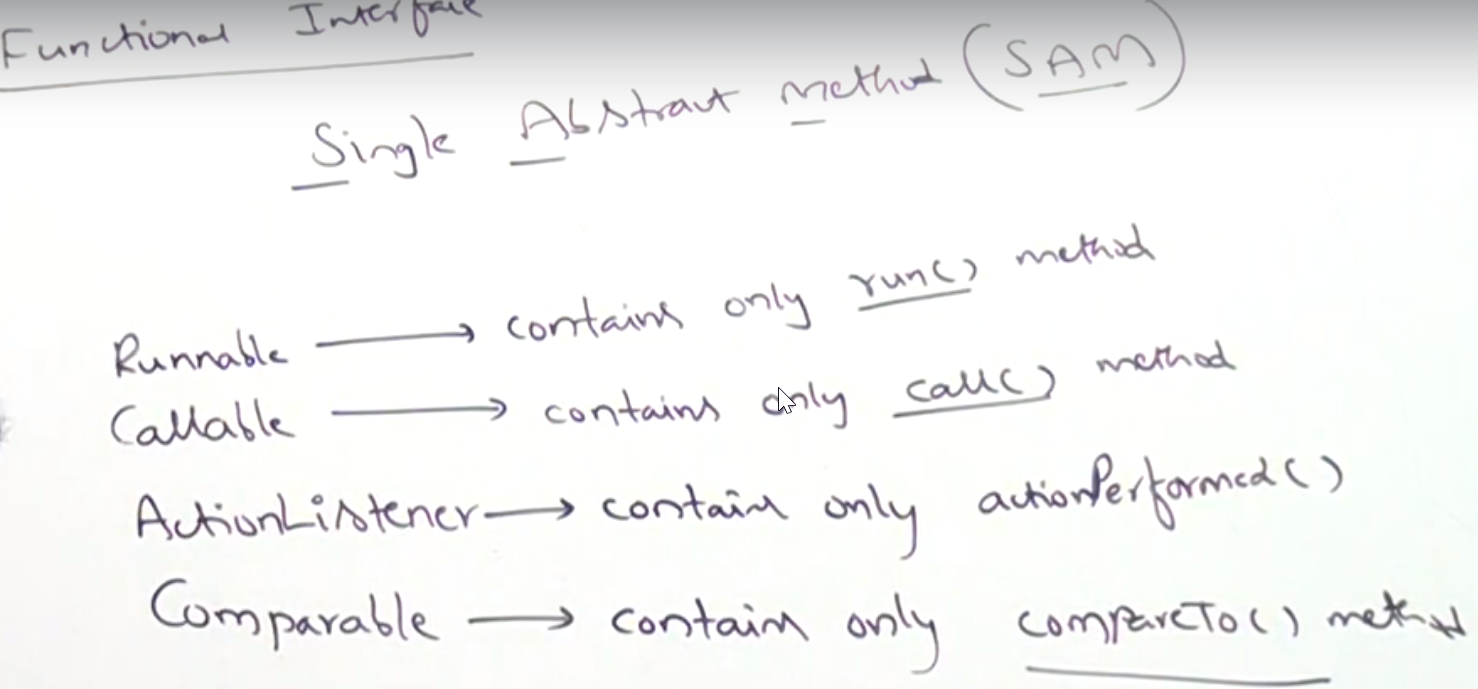 Functional Interface
Single Abstract Method (SAM)
Runnable → contains only run() method
Callable → contains only call() method
ActionListener → contain only actionPerformed()
Comparable → contain only compareTo() method